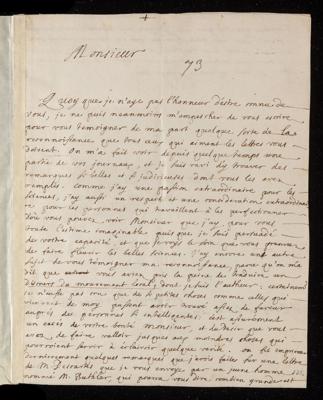 Monsieur
73
Quoy que je n'aye pas l'honneur d'estre connu de
vous, je ne puis neanmoins m'empescher de vous escrire
pour vous temoigner de ma part quelque sorte de la
reconnoissance que tous ceux qui aiment les lettres vous
doivent. On m'a fait voir depuis quelque temps une
partie de vos journaux, et je suis ravi d'y trouver des
remarques si belles et si judicieuses dont vous les avez
remplis. comme j'ay une passion extraordinaire pour les
sciences, j'ay aussi un respect et une consideration extraordinaire
pour les personnes qui travaillent à les perfectionner
vous pouvez voir Monsieur que j'ay pour vous
toute l'estime imaginable puis que je suis persuadé
de vostre capacité, et que je voys le soin que vous prenez
de faire fleurir les belles sciences; j'ay encore un autre
sujet de vous temoigner ma reconnoissance, parce qu'on m'a
dit que vous aviez pris la peine de traduire un
discours du mouvement local, dont je suis l'autheur; certainement
je n'eusse pas cru que de si petites choses comme celles qui
viennent de moy pussent avoir trouvé assez de faveur
aupres des personnes si intelligentes; c'est assurement
un excés de vostre bonté monsieur, et desir que vous
avez de faire valloir jusques aux moindres choses qui
pourroient servir à éclaircir quelque verité. on fit imprimer
dernierement quelques remarques que j'avois faites sur une lettre
de M. Descartes que je vous envoye par un jeune homme
nommé M. Buthler, qui pourra vous dire, combien grande est